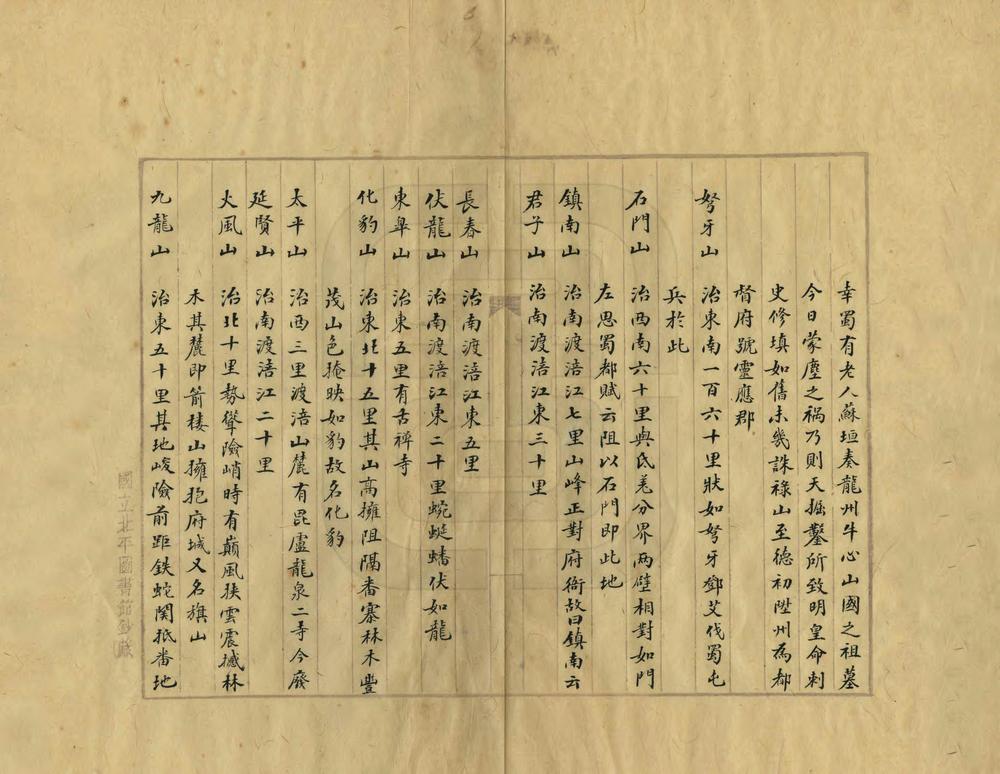 幸蜀有老人蘇垣奏龍州牛心山國之祖墓
今日蒙塵之禍乃則天掘鑿所致明皇命刺
史修填如舊未幾誅祿山至德初陞州為都
督府號靈應郡
弩牙山 治東南一百六十里狀如弩牙鄧艾伐蜀屯
兵於此
石門山 治西南六十里與氐羌分界兩壁相對如門
左思蜀都賦云阻以石門即此地
鎮南山 治南渡涪江七里山峰正對府衙故曰鎮南云
君子山 治南渡涪江東三十里
長春山 治南渡涪江東五里
伏龍山 治南渡涪江東二十里蜿蜒蟠伏如龍
東皐山 治東五里有古禪寺
化豹山 治東北十五里其山高擁阻隔番寨林木豐
茂山色掩映如豹故名化豹
太平山 治西三里渡涪山麓有毘盧龍泉二寺今廢
延賢山 治南渡涪江二十里
火風山 治北十里勢聳險峭時有巔風挾雲震撼林
木其麓即箭樓山擁抱府城又名旗山
九龍山 治東五十里其地峻險前距鉄蛇関抵番地
國立北平圖書館鈔藏